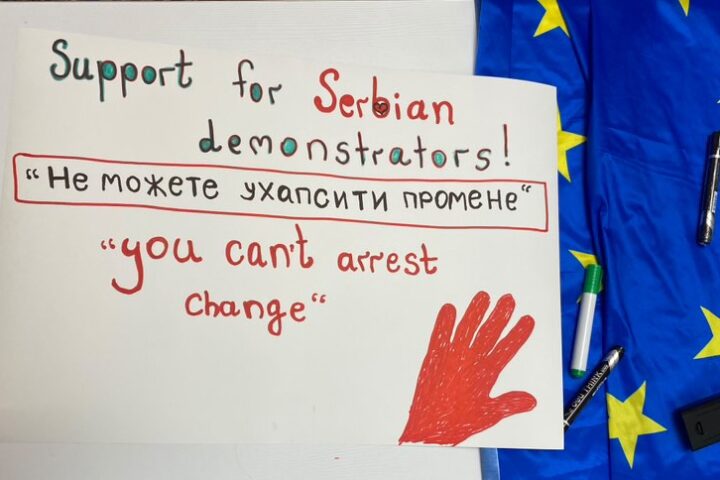 Support for Serbian
demonstrators!
“Не можете ухапсити промене“
“you can't arrest
change“